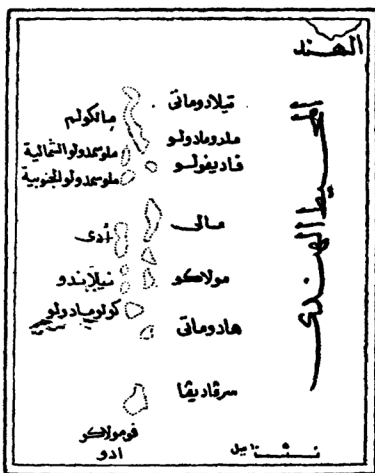 الهند
المحيط الهندى
تيلادوماتى
مالكولم
ملدومادولو
ملوسمدولو الشمالية
فاديفولو
ملوسمدولو الجنوبية
مالى
أدى
مولاكو
نيلاندو
كولومادولو
هادوماتى
سرقاديقا
فومولاكو
ادو
ميل